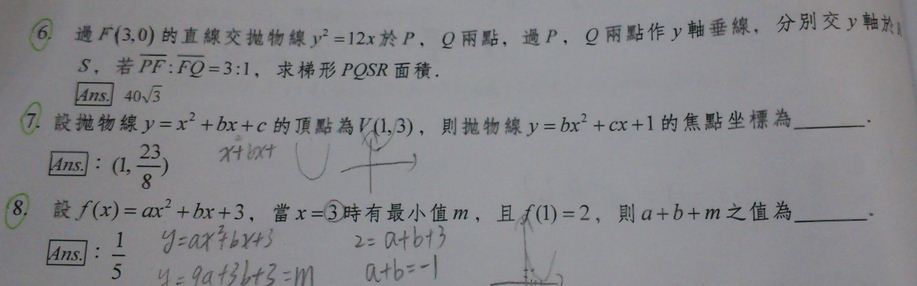 6. 過F(3,0)的直線交拋物線y²=12x於P，Q兩點，過P，Q兩點作y軸垂線，分別交y軸於
S，若PF:FQ=3:1，求梯形PQSR面積．
Ans. 40√3
7. 設拋物線y=x²+bx+c的頂點為V(1,3)，則拋物線y=bx²+cx+1的焦點坐標為______．
Ans.：(1, 23/8) x+bx+
8. 設f(x)=ax²+bx+3，當x=3時有最小值m，且f(1)=2，則a+b+m之值為______．
Ans.：1/5 y=ax²+bx+3 2=a+b+3
y=9a+3b+3=m a+b=-1